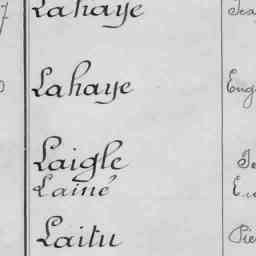 Lahaye
Lahaye Eug
Laigle
Lainé
Laitu Pie